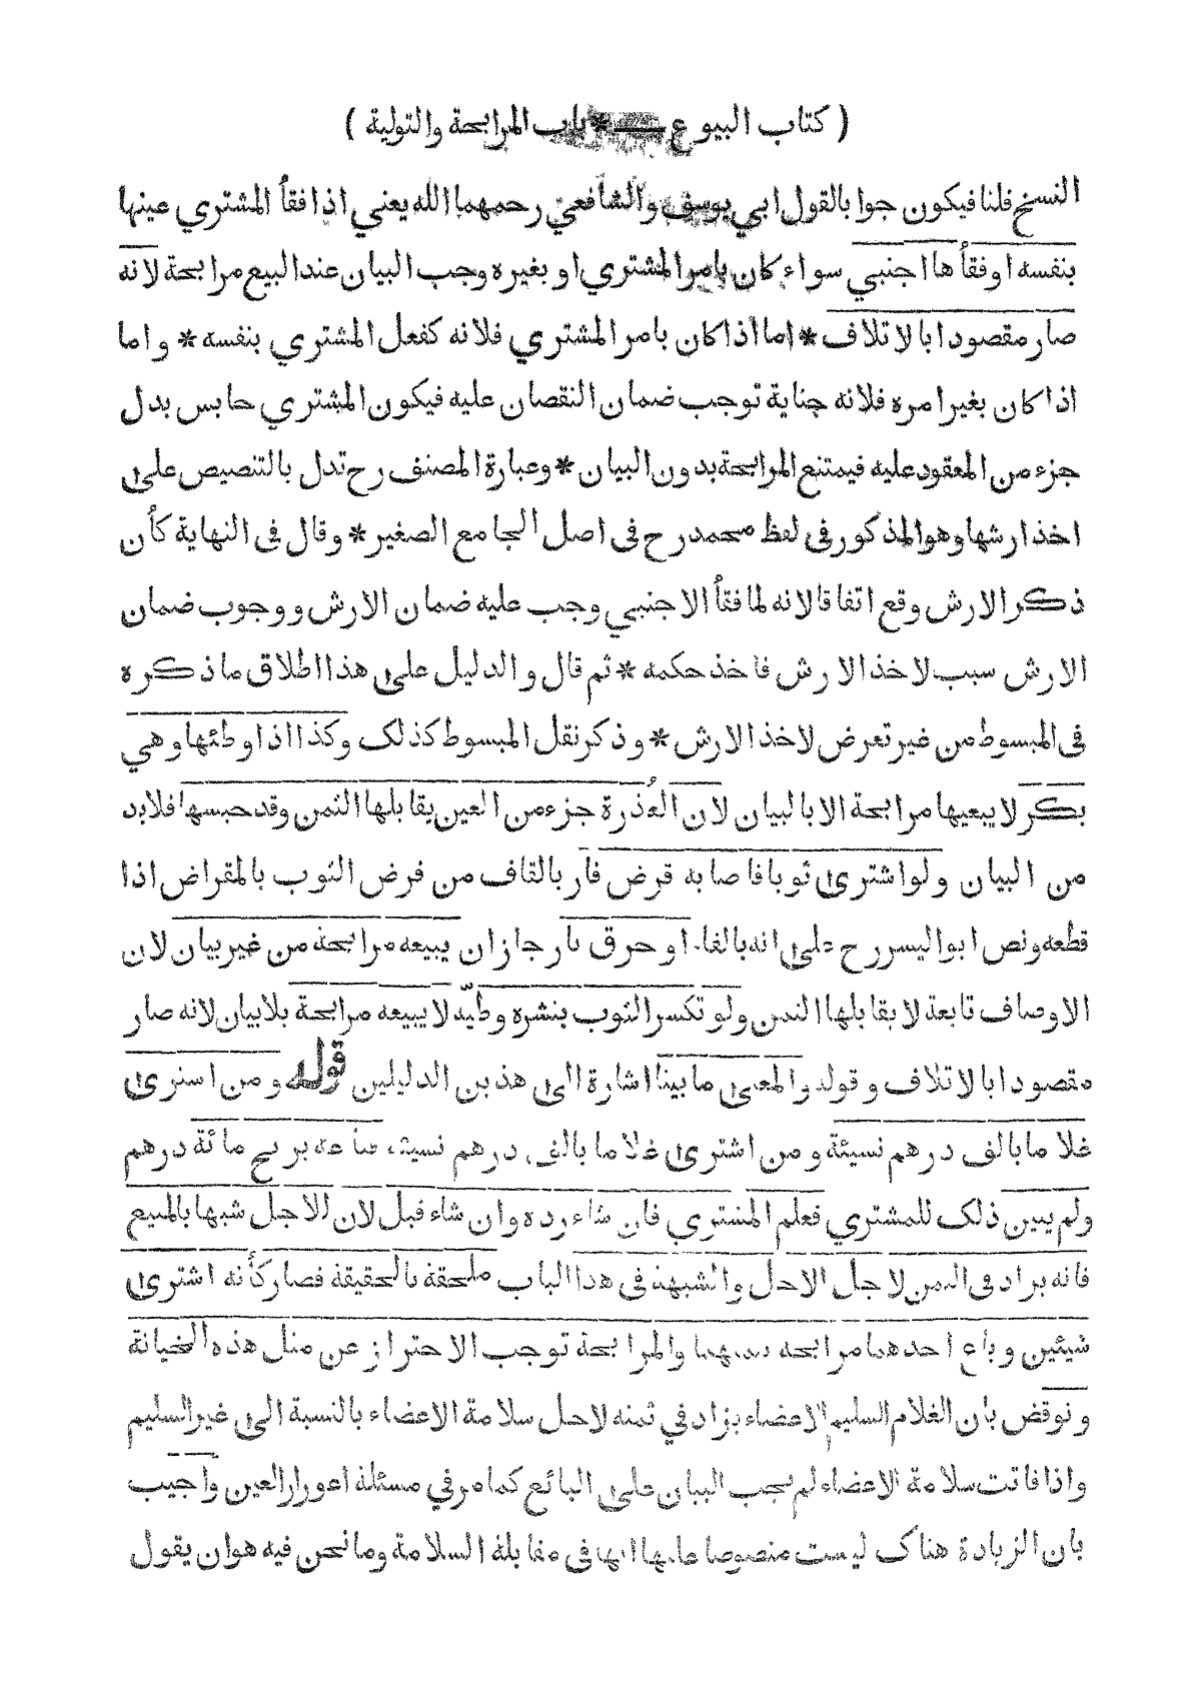 ( كتاب البيوع — * باب المرابحة والتولية )
النسخ قلنا فيكون جوابا لقول ابي يوسف والشافعي رحمهما الله يعني اذا فقأ المشتري عينها
بنفسه او فقأها اجنبي سواء كان بامر المشتري او بغيره وجب البيان عند البيع مرابحة لانه
صار مقصودا بالاتلاف * اما اذا كان بامر المشتري فلانه كفعل المشتري بنفسه * واما
اذا كان بغير امره فلانه جناية توجب ضمان النقصان عليه فيكون المشتري حابس بدل
جزء من المعقود عليه فيمتنع المرابحة بدون البيان * وعبارة المصنف رح تدل بالتنصيص على
اخذ ارشها وهو المذكور في لفظ محمد رح في اصل الجامع الصغير * وقال في النهاية كأن
ذكر الارش وقع اتفاقا لانه لما فقأ الاجنبي وجب عليه ضمان الارش ووجوب ضمان
الارش سبب لاخذ الارش فاخذ حكمه * ثم قال والدليل على هذا اطلاق ما ذكره
في المبسوط من غير تعرض لاخذ الارش * وذكر نقل المبسوط كذلك وكذا اذا وطئها وهي
بكر لا يبيعها مرابحة الا بالبيان لان العُذرة جزء من العين يقابلها الثمن وقد حبسها فلا بد
من البيان ولو اشترى ثوبا فاصابه قرض فار بالقاف من قرض الثوب بالمقراض اذا
قطعه ونص ابو اليسر رح على انه بالفاء او حرق نار جاز ان يبيعه مرابحة من غير بيان لان
الاوصاف تابعة لا يقابلها الثمن ولو تكسر الثوب بنشره وطيّه لا يبيعه مرابحة بلا بيان لانه صار
مقصودا بالاتلاف وقوله والمعنى ما بينا اشارة الى هذين الدليلين قوله ومن اشترى
غلاما بالف درهم نسيئة ومن اشترى غلاما بالف درهم نسيئة فباعه بربح مائة درهم
ولم يبين ذلك للمشتري فعلم المشتري فان شاء رده وان شاء قبل لان للاجل شبها بالمبيع
فانه يزاد في الثمن لاجل الاجل والشبهة في هذا الباب ملحقة بالحقيقة فصار كأنه اشترى
شيئين وباع احدهما مرابحة بثمنهما والمرابحة توجب الاحتراز عن مثل هذه الخيانة
ونوقض بان الغلام السليم الاعضاء يزاد في ثمنه لاجل سلامة الاعضاء بالنسبة الى غير السليم
واذا فاتت سلامة الاعضاء لم يجب البيان على البائع كما مر في مسئلة اعورار العين واجيب
بان الزيادة هناك ليست منصوصا عليها انها في مقابلة السلامة وما نحن فيه هو ان يقول